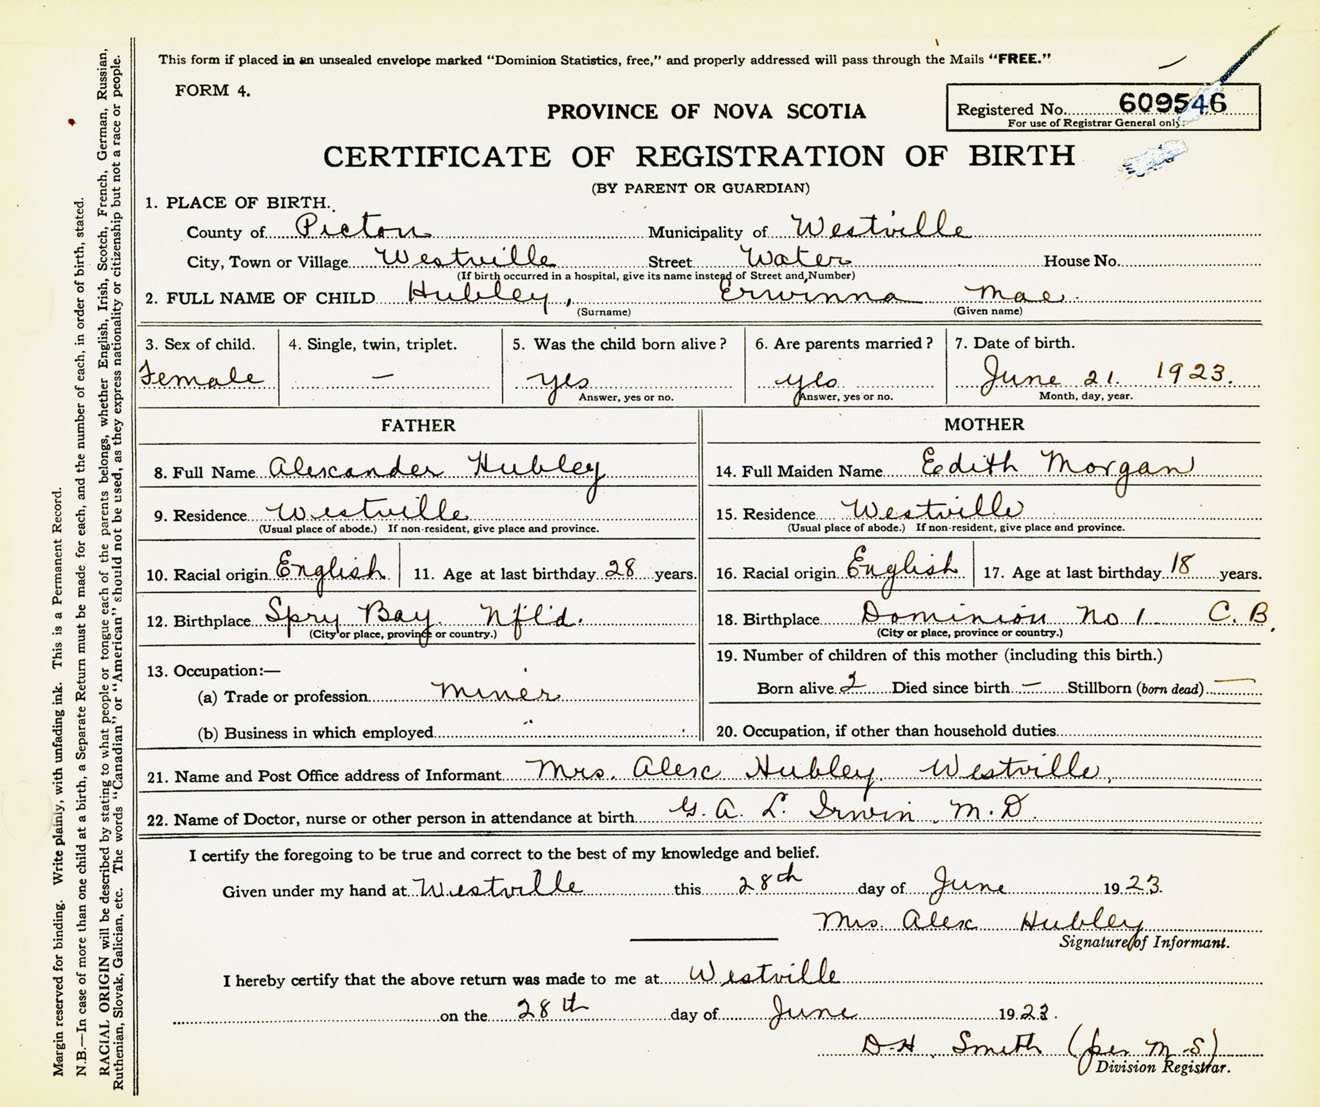 This form if placed in an unsealed envelope marked "Dominion Statistics, free," and properly addressed will pass through the Mails "FREE."
FORM 4.
PROVINCE OF NOVA SCOTIA
Registered No. 609546
For use of Registrar General only.
CERTIFICATE OF REGISTRATION OF BIRTH
(BY PARENT OR GUARDIAN)
1. PLACE OF BIRTH.
County of Pictou Municipality of Westville
City, Town or Village Westville Street Water House No.
(If birth occurred in a hospital, give its name instead of Street and Number)
2. FULL NAME OF CHILD Hubley, Erwinna Mae.
(Surname) (Given name)
3. Sex of child. 4. Single, twin, triplet. 5. Was the child born alive? 6. Are parents married? 7. Date of birth.
Female — yes yes June 21. 1923.
Answer, yes or no. Answer, yes or no. Month, day, year.
FATHER
8. Full Name Alexander Hubley
9. Residence Westville
(Usual place of abode.) If non-resident, give place and province.
10. Racial origin English 11. Age at last birthday 28 years.
12. Birthplace Spry Bay Nfld.
(City or place, province or country.)
13. Occupation:—
(a) Trade or profession Miner
(b) Business in which employed
MOTHER
14. Full Maiden Name Edith Morgan
15. Residence Westville
(Usual place of abode.) If non-resident, give place and province.
16. Racial origin English 17. Age at last birthday 18 years.
18. Birthplace Dominion No 1 C. B.
(City or place, province or country.)
19. Number of children of this mother (including this birth.)
Born alive 2 Died since birth — Stillborn (born dead) —
20. Occupation, if other than household duties
21. Name and Post Office address of Informant Mrs. Alex Hubley Westville,
22. Name of Doctor, nurse or other person in attendance at birth G. A. L. Irwin M.D.
I certify the foregoing to be true and correct to the best of my knowledge and belief.
Given under my hand at Westville this 28th day of June 1923.
Mrs. Alex Hubley
Signature of Informant.
I hereby certify that the above return was made to me at Westville
on the 28th day of June 1923.
D.H. Smith (per M.S)
Division Registrar.
Margin reserved for binding. Write plainly, with unfading ink. This is a Permanent Record.
N.B.—In case of more than one child at a birth, a Separate Return must be made for each, and the number of each, in order of birth, stated.
RACIAL ORIGIN will be described by stating to what people or tongue each of the parents belongs, whether English, Irish, Scotch, French, German, Russian,
Ruthenian, Slovak, Galician, etc. The words "Canadian" or "American" should not be used, as they express nationality or citizenship but not a race or people.